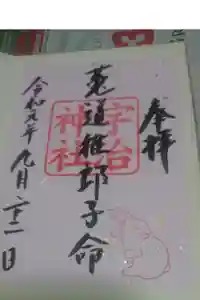 奉拝
菟道稚郎子命
宇治
神社
令和元年九月 日